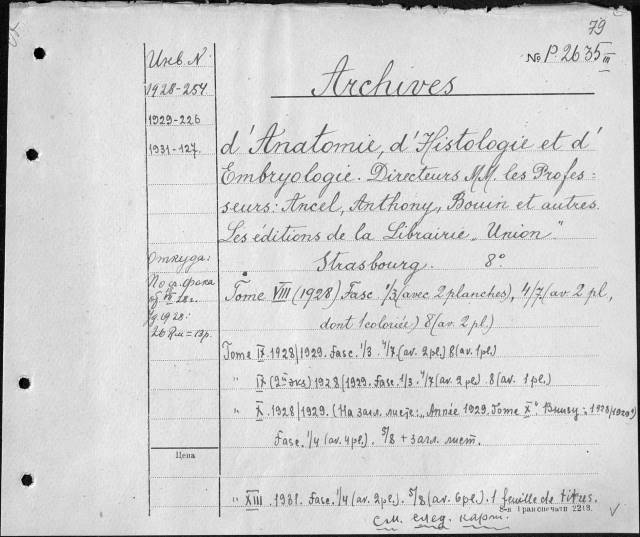 79
№ P.2635 III
Archives
Инв. N
1928-254
1929-226
1931-127.
d'Anatomie, d'Histologie et d'
Embryologie. Directeurs MM. les Profes-
seurs: Ancel, Anthony, Bouin et autres.
Les éditions de la Librairie „Union".
Strasbourg. 8°
Откуда:
1928:
Tome VIII (1928) Fasc. 1/3 (avec 2 planches), 4/7. (av 2 pl,
dont 1 coloriée) 8 (av. 2 pl.)
Tome IX. 1928/1929. Fasc. 1/3. 4/7. (av. 2 pl.) 8 (av. 1 pl.)
„ IX (2й экз) 1928/1929. Fasc. 1/3. 4/7 (av. 2 pl.) 8 (av. 1 pl.)
„ X. 1928/1929. (На загл. листе: „Année 1929. Tome X". Внизу: 1928/1929")
Fasc. 1/4 (av. 4 pl.). 5/8 + загл. лист.
Цена
„ XIII. 1931. Fasc. 1/4 (av. 2 pl.). 5/8 (av. 6 pl.). 1 feuille de titres.
8-я Транспечати 2213.
см. след. карт.